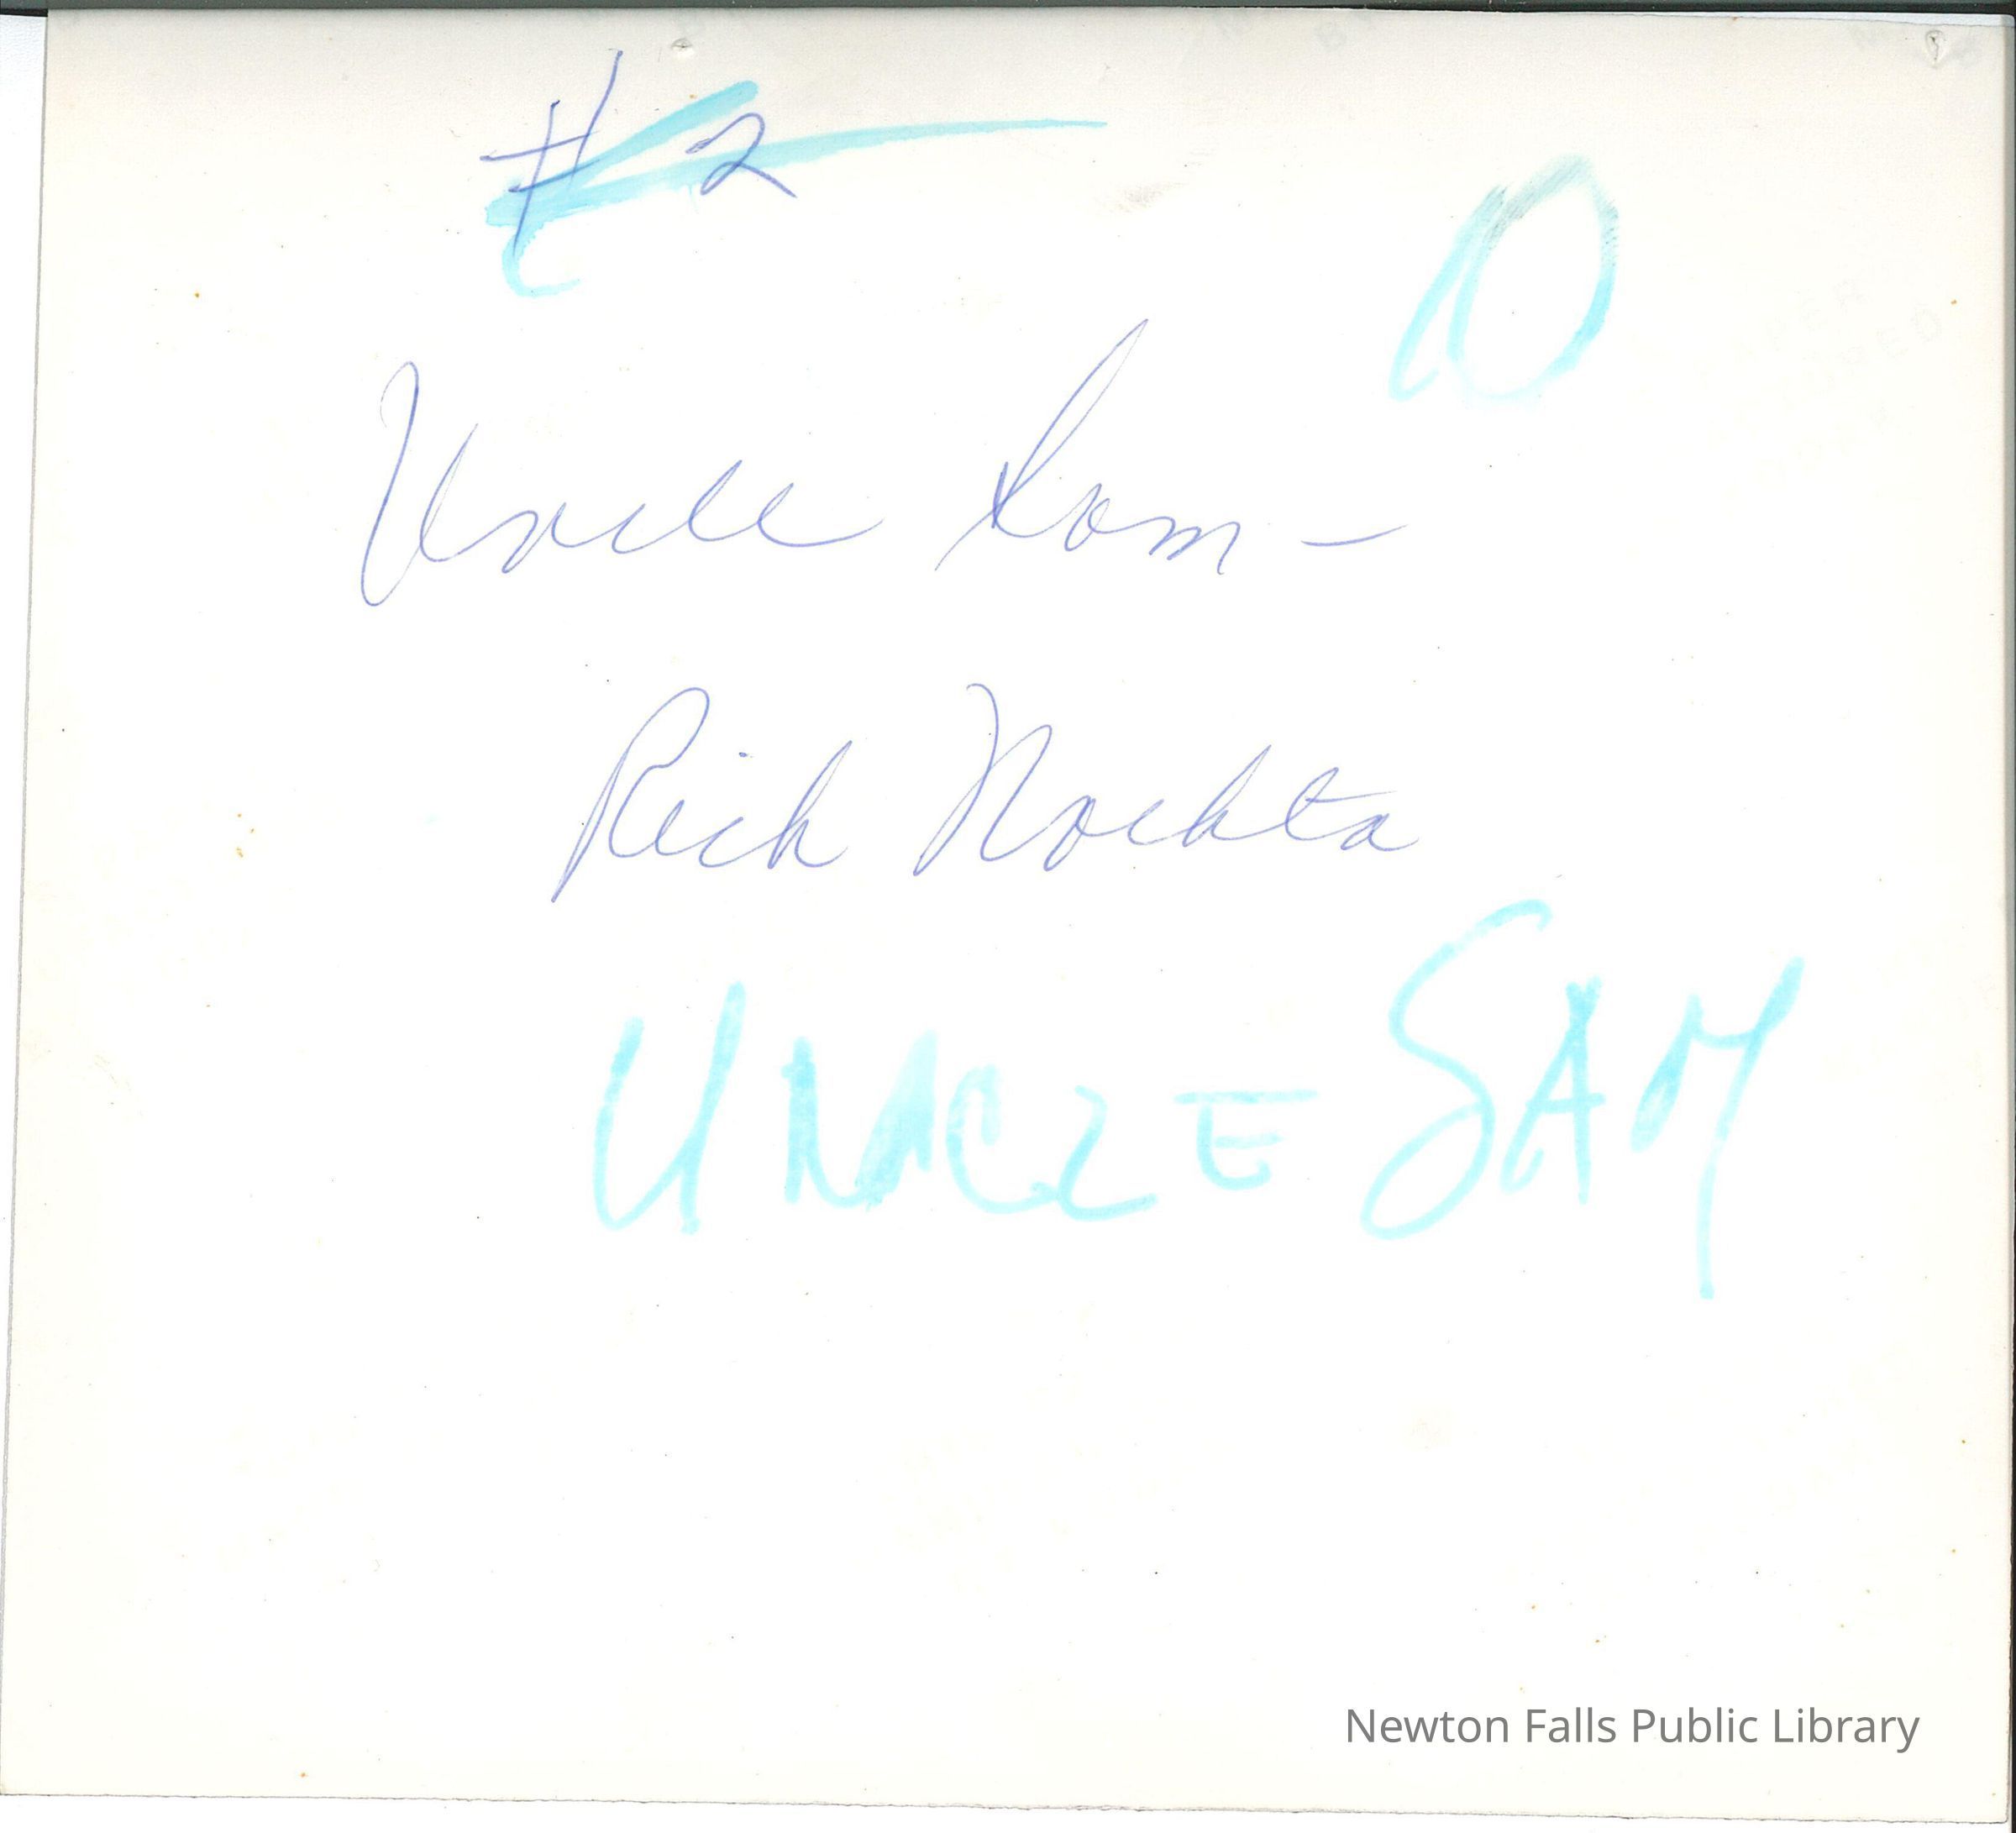 #2
10
Uncle Sam -
Rich Nochta
UNCLE SAM
Newton Falls Public Library